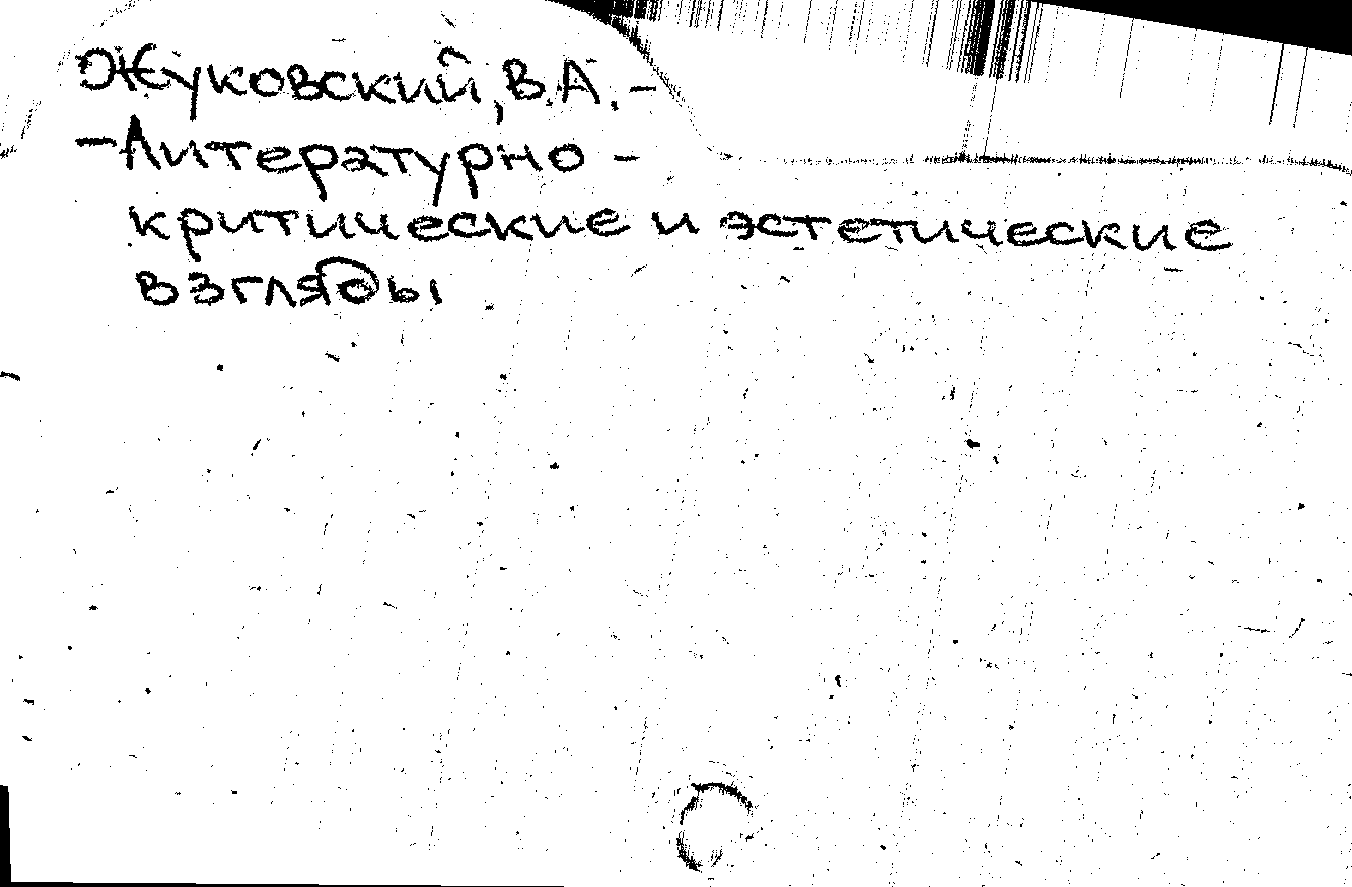 Жуковский, В.А. –
– Литературно –
критические и эстетические
взгляды